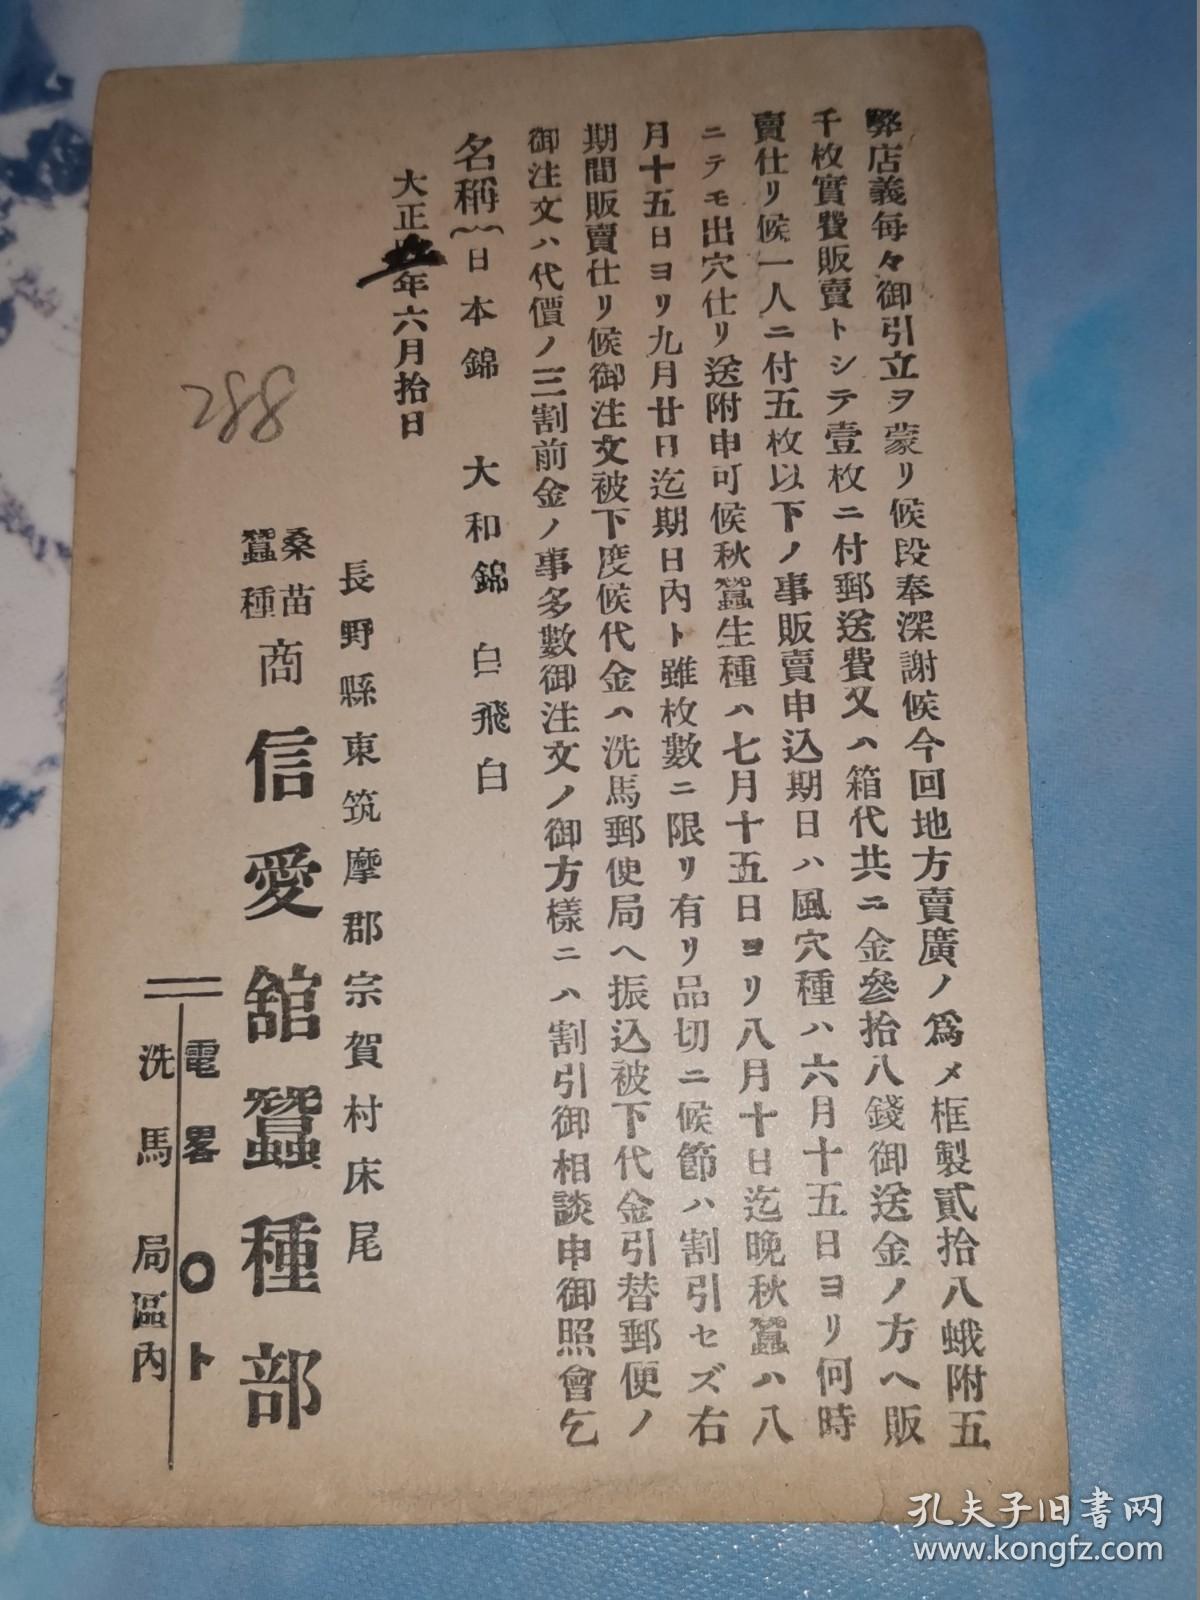 弊店義每々御引立ヲ蒙リ候段奉深謝候今回地方賣廣ノ爲メ框製貳拾八蛾附五
千枚實費販賣トシテ壹枚ニ付郵送費又ハ箱代共ニ金參拾八錢御送金ノ方ヘ販
賣仕リ候一人ニ付五枚以下ノ事販賣申込期日ハ風穴種ハ六月十五日ヨリ何時
ニテモ出穴仕リ送附申可候秋蠶生種ハ七月十五日ヨリ八月十日迄晩秋蠶ハ八
月十五日ヨリ九月廿日迄期日內ト雖枚數ニ限リ有リ品切ニ候節ハ割引セズ右
期間販賣仕リ候御注文被下度候代金ハ洗馬郵便局ヘ振込被下代金引替郵便ノ
御注文ハ代價ノ三割前金ノ事多數御注文ノ御方樣ニハ割引御相談申御照會乞
名稱 日本錦 大和錦 白飛白
大正 年六月拾日
長野縣東筑摩郡宗賀村床尾
桑苗
蠶種
商 信愛舘蠶種部
電畧 〇ト
洗馬局區內
882
孔夫子旧书网
www.kongfz.com